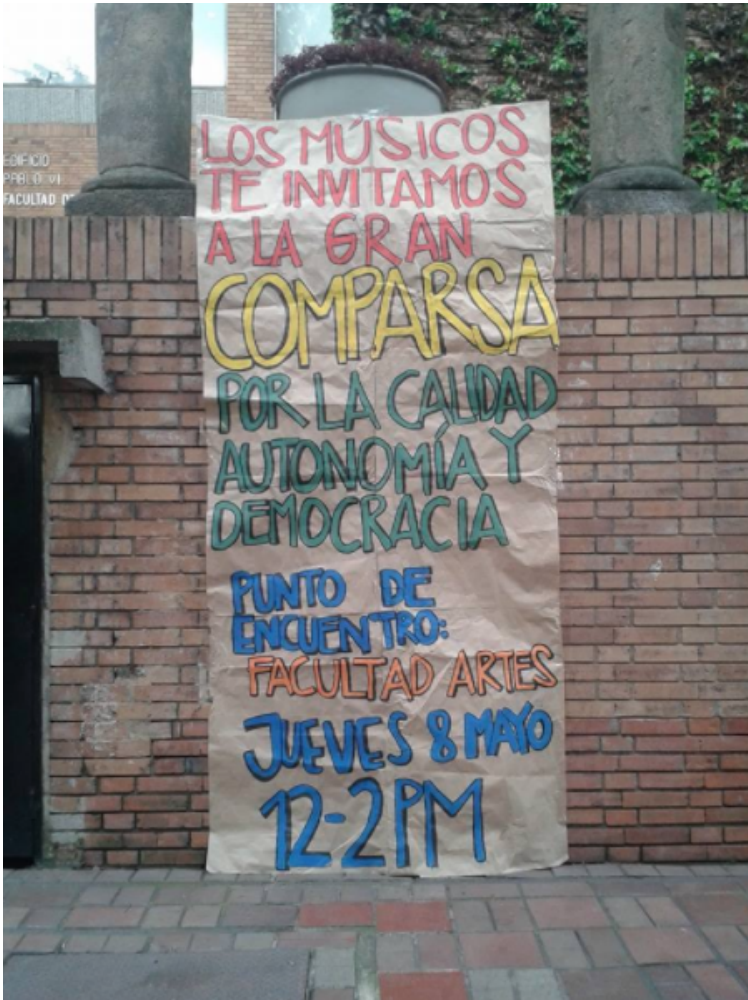 EDIFICIO
PABLO VI
FACULTAD
LOS MÚSICOS
TE INVITAMOS
A LA GRAN
COMPARSA
POR LA CALIDAD
AUTONOMÍA Y
DEMOCRACIA
PUNTO DE
ENCUENTRO:
FACULTAD ARTES
JUEVES 8 MAYO
12-2PM